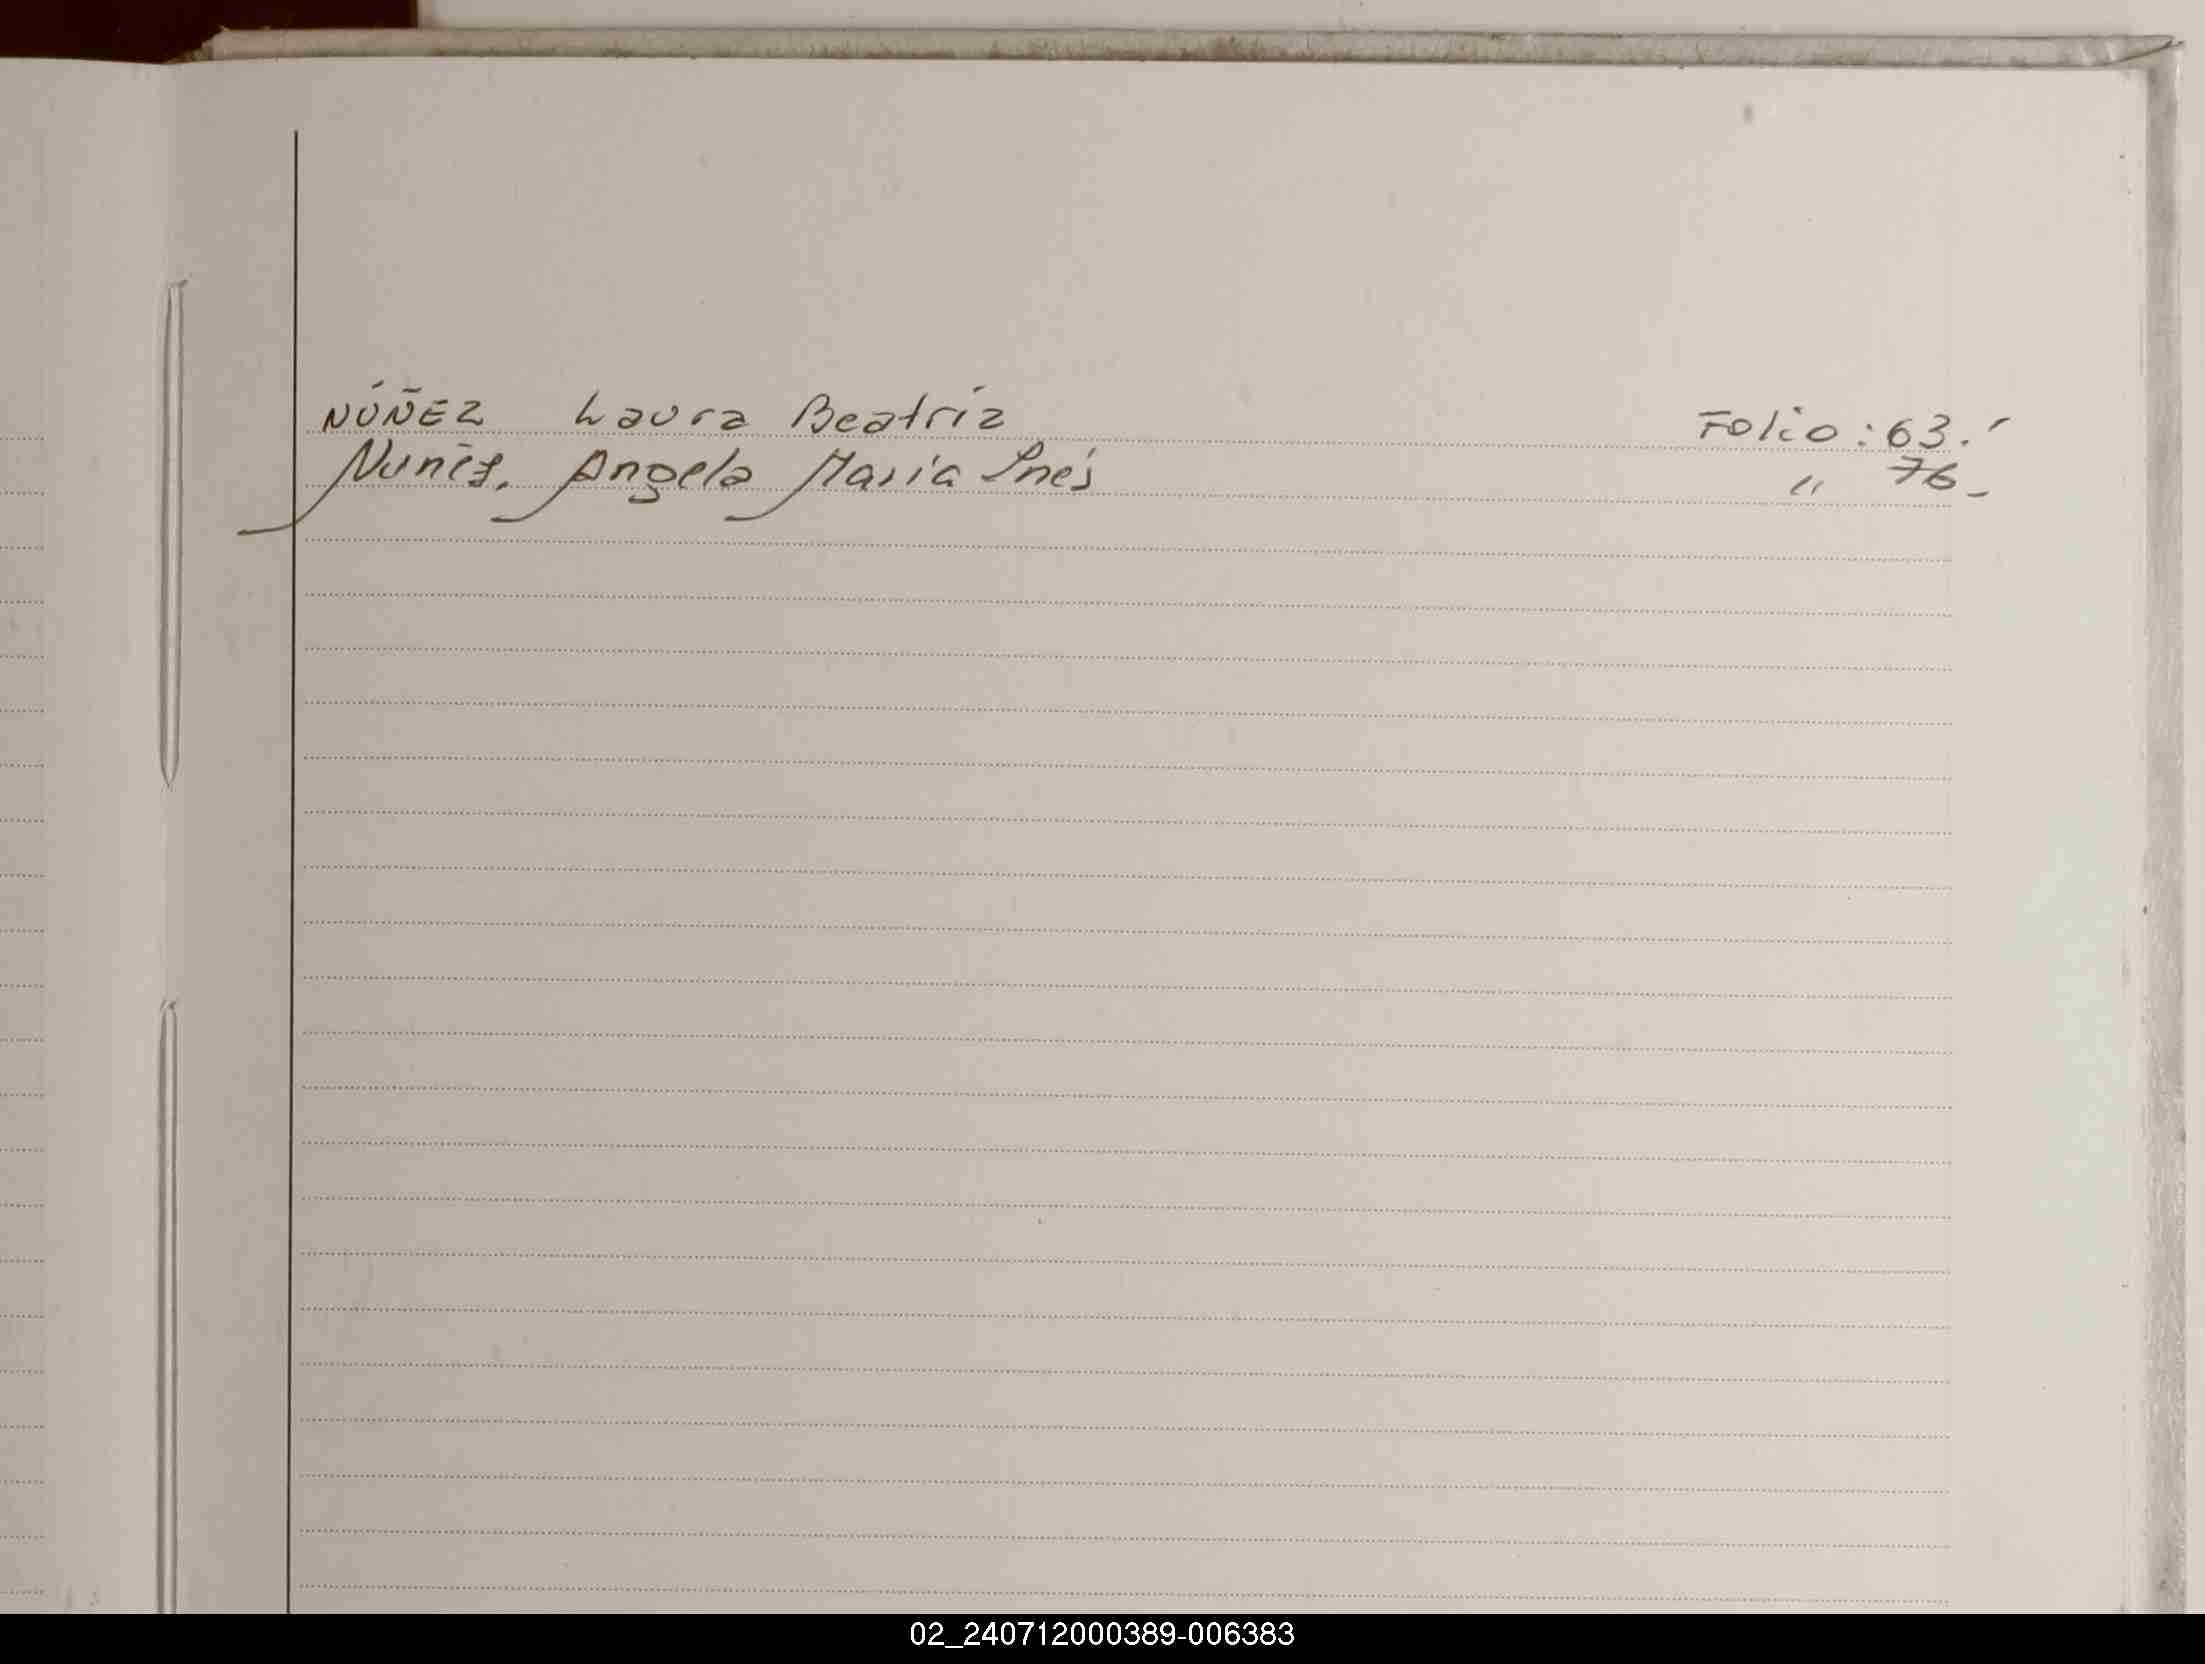 NÚÑEZ Laura Beatríz Folio: 63.-
Nuñez, Angela María Inés " 76-
02_240712000389-006383